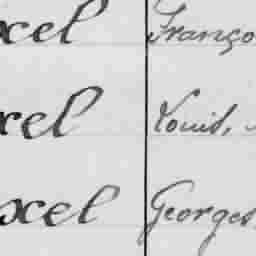 xel Franço
xel Louis,
xel Georges